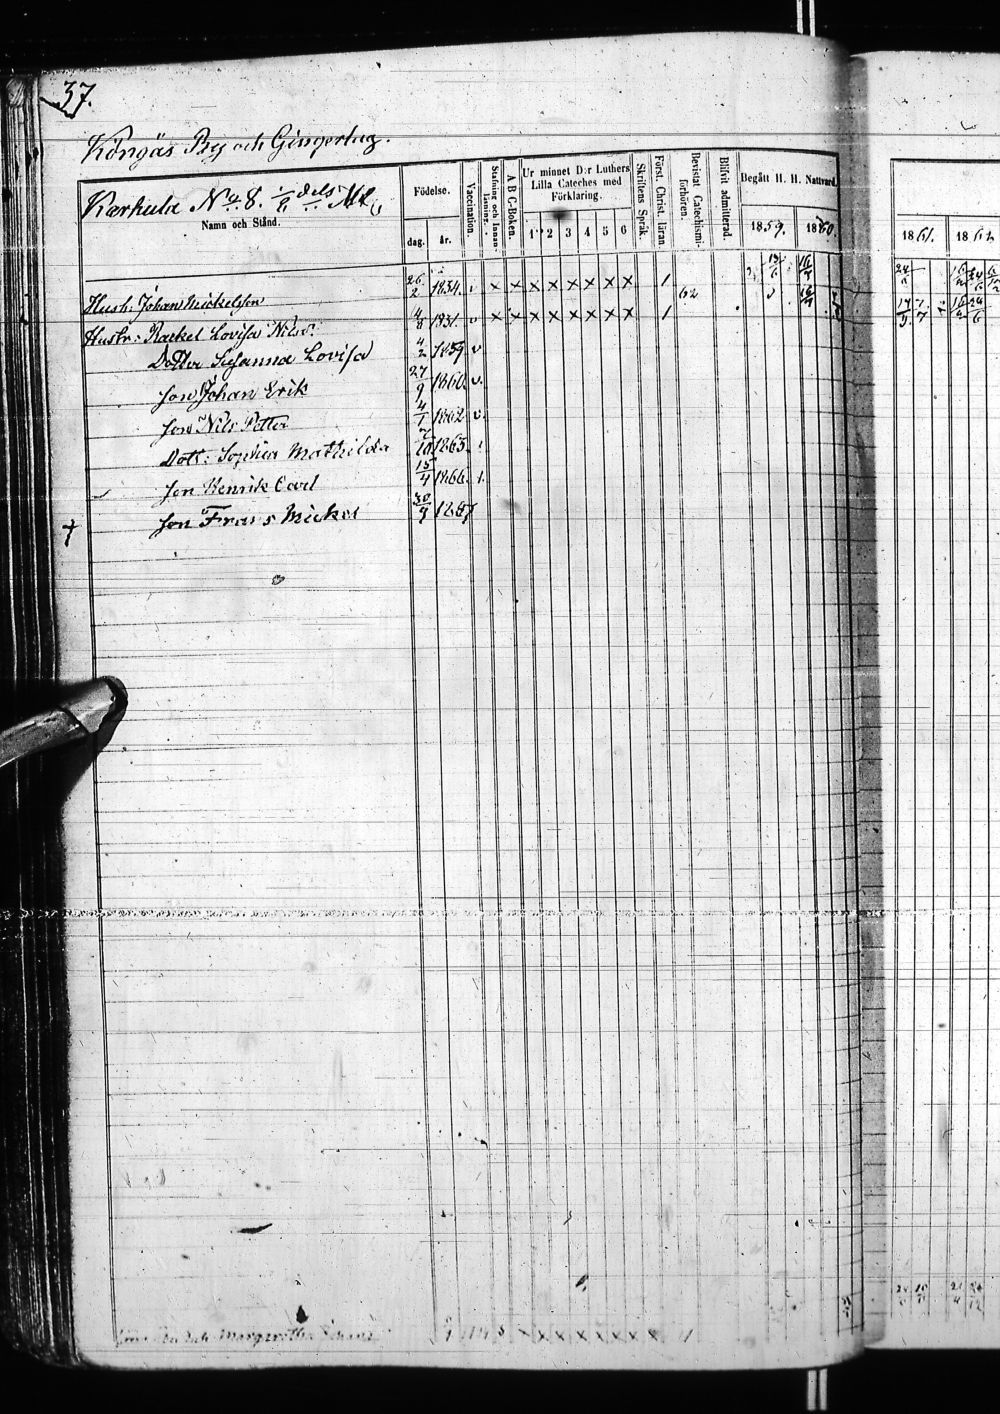 37.
Köngäs By och Gingerlag.
Kærkula No 8. 1/8 dels Mtl
Namn och Stånd.
Födelse.
dag. år.
Vaccination.
Stafning och Innanläsning.
A B C-Boken.
Ur minnet D:r Luthers Lilla Cateches med Förklaring.
1 2 3 4 5 6
Skriftens Språk.
Först. Christ. läran.
Bevistat Catechismi-förhören.
Blifvit admitterad.
Begått H. H. Nattvard.
1859. 1860. 1861. 1862
Husb: Johan Mickelsson 26/2 1834. v x x x x x x x x 1 62
Hustr: Rackel Lovisa Nilsd: 4/8 1831. v x x x x x x x x 1
Dotter Susanna Lovisa 4/2 1859 v
Son Johan Erik 27/9 1860. v.
Son Nils Petter 4/1 1862 v.
Dott: Sophia Mathilda 7/10 1863.
Son Henrik Carl 15/4 1866. 1.
† Son Frans Mickel 30/9 1867
Margaretha x x x x x x x x